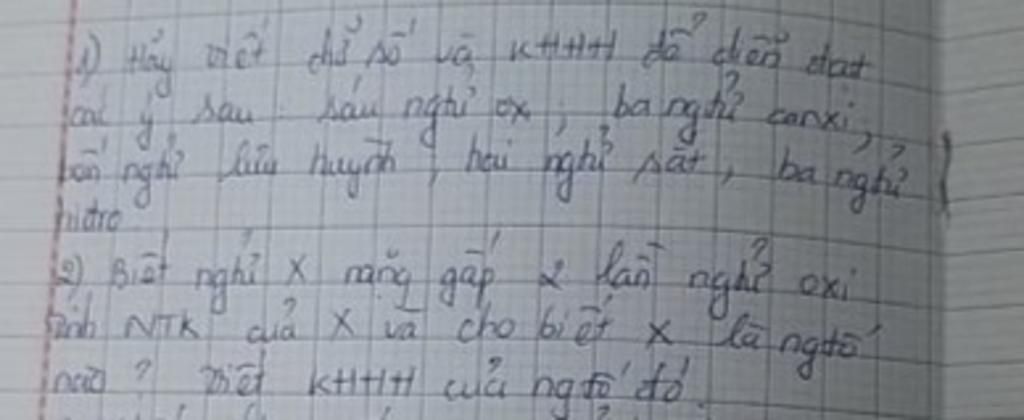 1) Hãy viết chữ số và KHHH để diễn đạt
các ý sau: sáu nghỉ ox, ba nghỉ canxi,
bốn nghỉ lưu huỳnh, hai nghỉ sắt, ba nghỉ
hidro
2) Biết nghỉ X nặng gấp 2 lần nghỉ oxi
tính NTK của X và cho biết X là ngtố
nào? viết KHHH của ngtố đó.